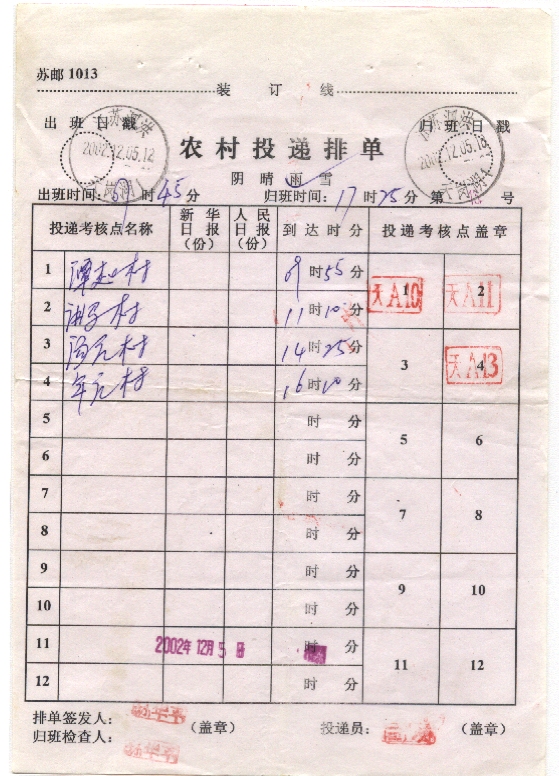 苏邮 1013
装 订 线
出 班 日 戳 归 班 日 戳
2002.12.05.12 2002.12.05.18
农村投递排单
阴 晴 雨 雪
出班时间: 时 45 分 归班时间: 17 时 25 分 第 号
投递考核点名称 新华日报(份) 人民日报(份) 到达时分 投递考核点盖章
1 村 09 时 55 分 1 天A10 2 天A11
2 村 11 时 10 分
3 村 14 时 25 分 3 4 天A13
4 村 16 时 10 分
5 时 分 5 6
6 时 分
7 时 分 7 8
8 时 分
9 时 分 9 10
10 时 分
11 2002年12月5日 时 分 11 12
12 时 分
排单签发人: (盖章) 投递员: (盖章)
归班检查人: